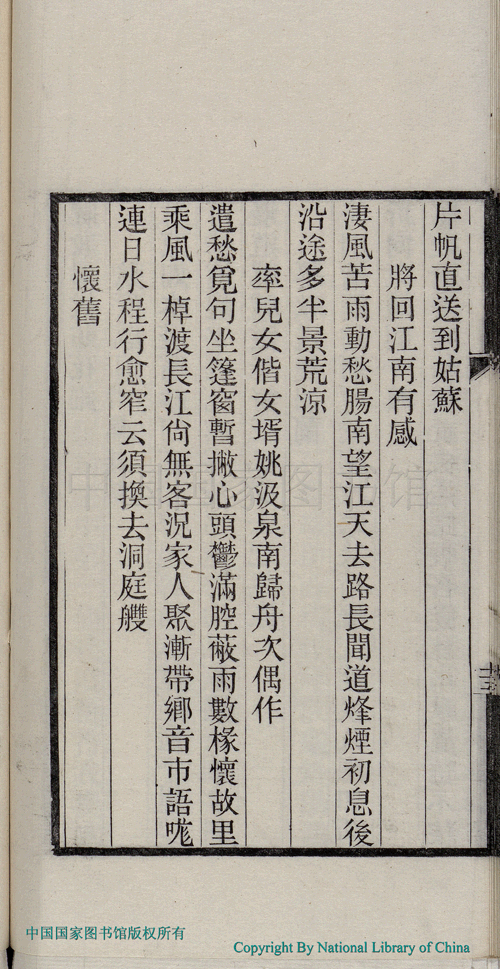 片帆直送到姑蘇
將回江南有感
淒風苦雨動愁腸南望江天去路長聞道烽煙初息後
沿途多半景荒涼
率兒女偕女壻姚汲泉南歸舟次偶作
遣愁覓句坐篷窗暫撇心頭鬱滿腔蔽雨數椽懷故里
乘風一棹渡長江尙無客況家人聚漸帶鄉音市語哤
連日水程行愈窄云須換去洞庭艭
懷舊
十三
中国国家图书馆
中国国家图书馆版权所有
Copyright By National Library of China